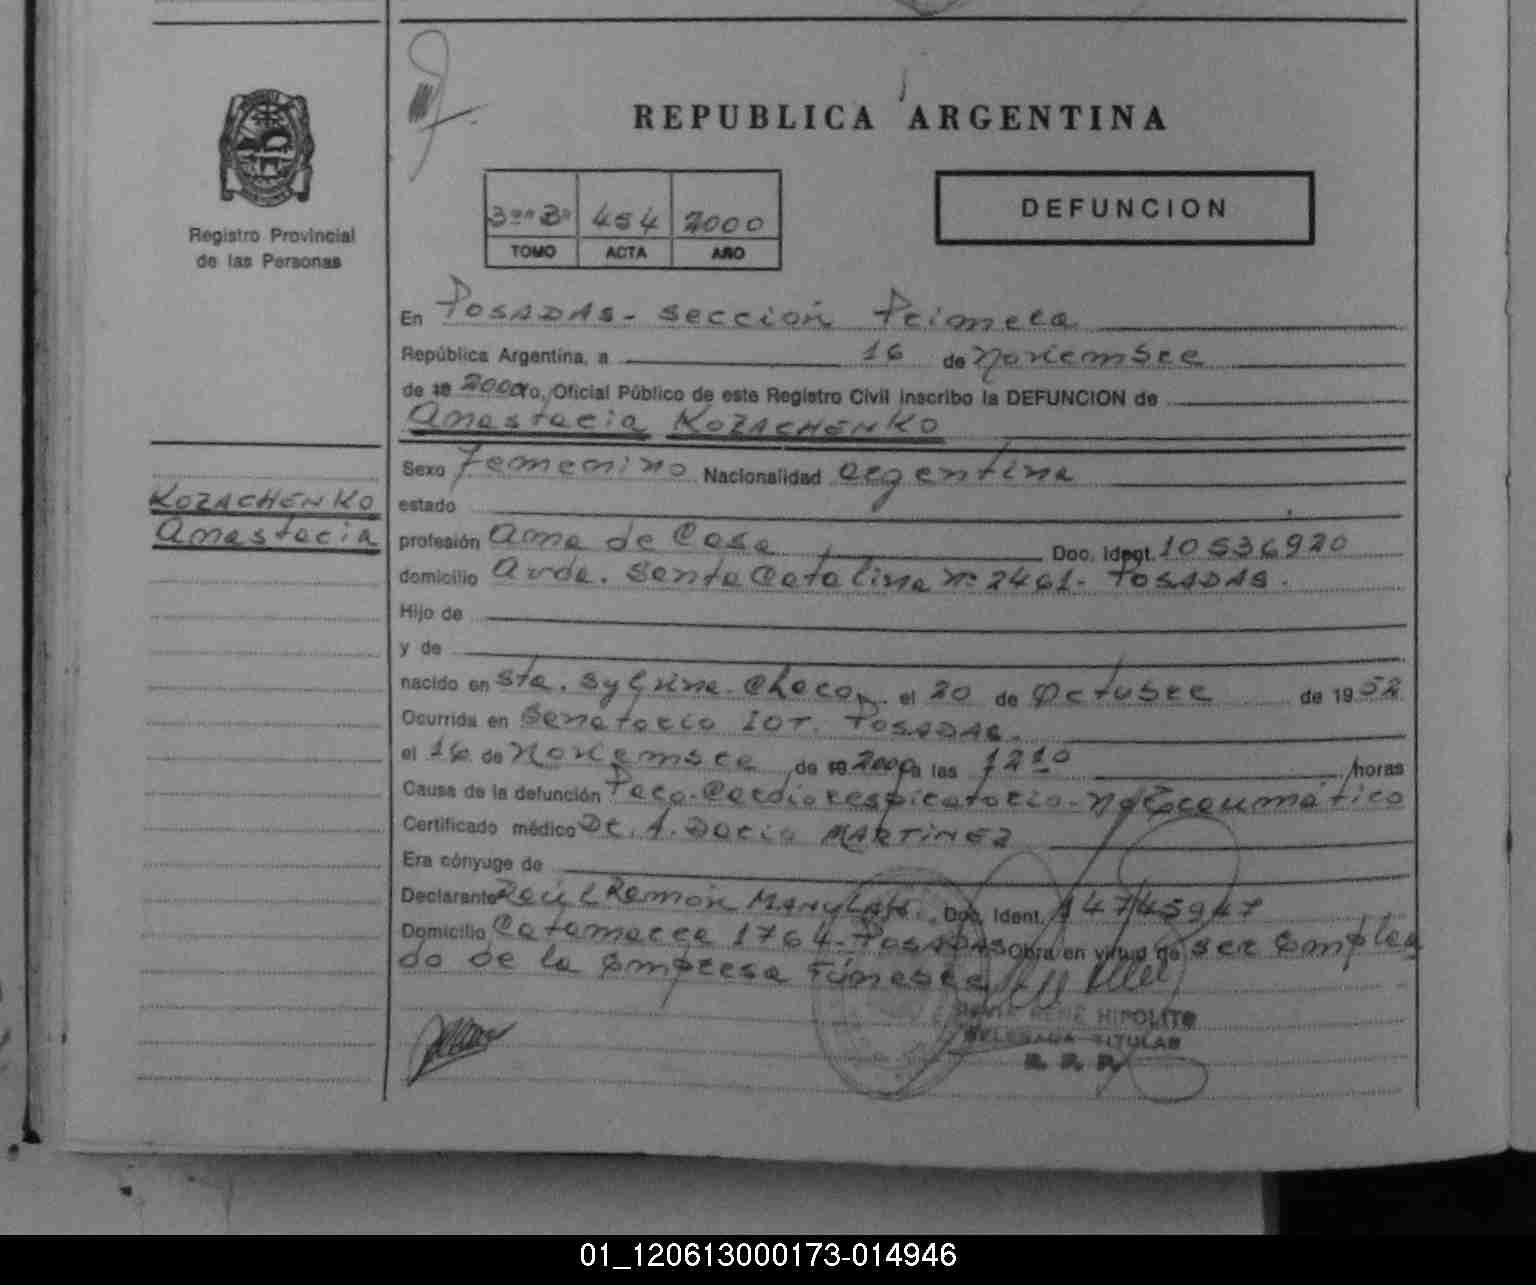 REPUBLICA ARGENTINA
Registro Provincial
de las Personas
3º "B" 454 2000
TOMO ACTA AÑO
DEFUNCION
En POSADAS - sección Primera
República Argentina, a 16 de noviembre
de 19 2000 Yo, Oficial Público de este Registro Civil inscribo la DEFUNCION de
Anastacia KOZACHENKO
KOZACHENKO
Anastacia
Sexo Femenino Nacionalidad argentina
estado
profesión Ama de Casa Doc. Ident. 10536920
domicilio Avda. Santa Catalina nº 2461 - POSADAS.
Hijo de
y de
nacido en Sta. Sylvina - Chaco, el 20 de Octubre de 1952
Ocurrida en Sanatorio IOT. POSADAS.
el 16 de Noviembre de 19 2000 a las 12 10 horas
Causa de la defunción Paro - Cardiorespiratorio - no Traumático
Certificado médico Dr. A. Dario MARTINEZ
Era cónyuge de
Declarante Raúl Ramón Doc. Ident. 14745947
Domicilio Catamarca 1764 - POSADAS Obra en virtud de ser Emplea
do de la Empresa Fúnebre
RENE HIPOLITO
DELEGADA TITULAR
R. P. P.
01_120613000173-014946